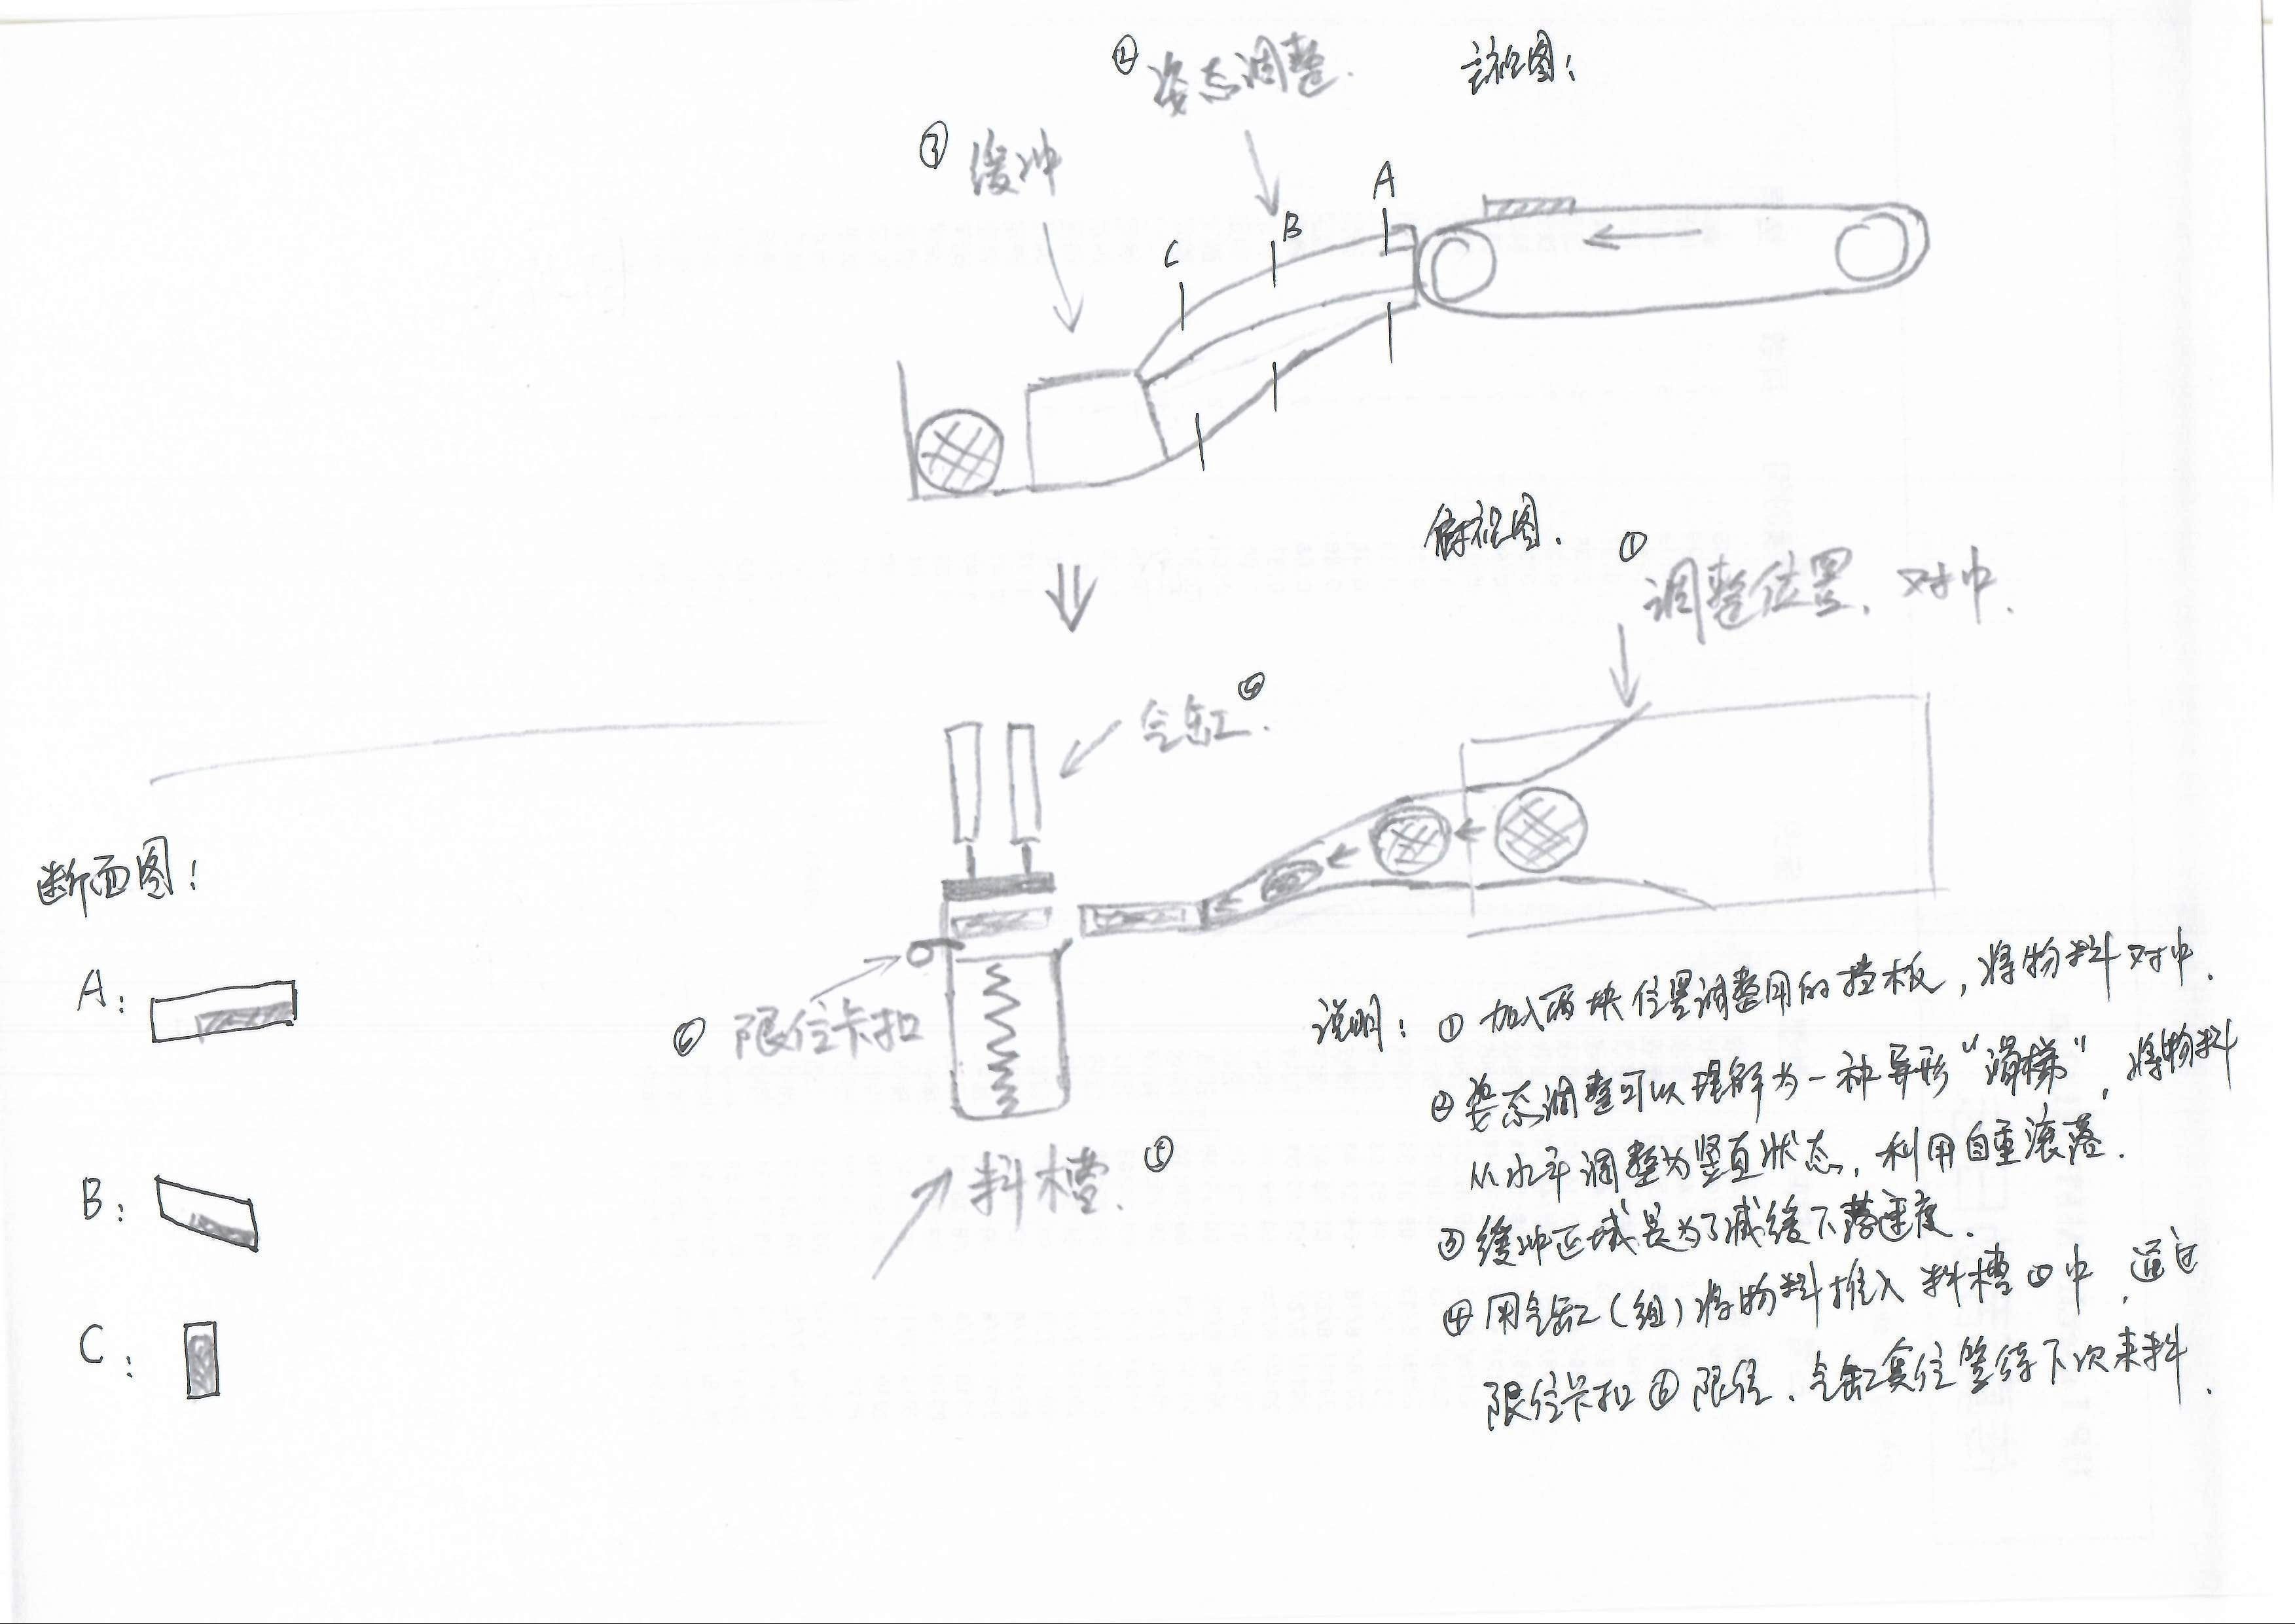 ② 姿态调整.
主视图:
③ 缓冲
A
B
C
俯视图.
① 调整位置,对中.
气缸. ④
断面图:
A:
B:
C:
⑥ 限位卡扣
料槽. ⑤
说明: ① 加入两块位置调整用的挡板,将物料对中.
② 姿态调整可以理解为一种异形“滑梯”,将物料
从水平调整为竖直状态,利用自重滚落.
③ 缓冲区域是为了减缓下落速度.
④ 用气缸(组)将物料推入料槽⑤中,通过
限位卡扣⑥限位.气缸复位等待下次来料.